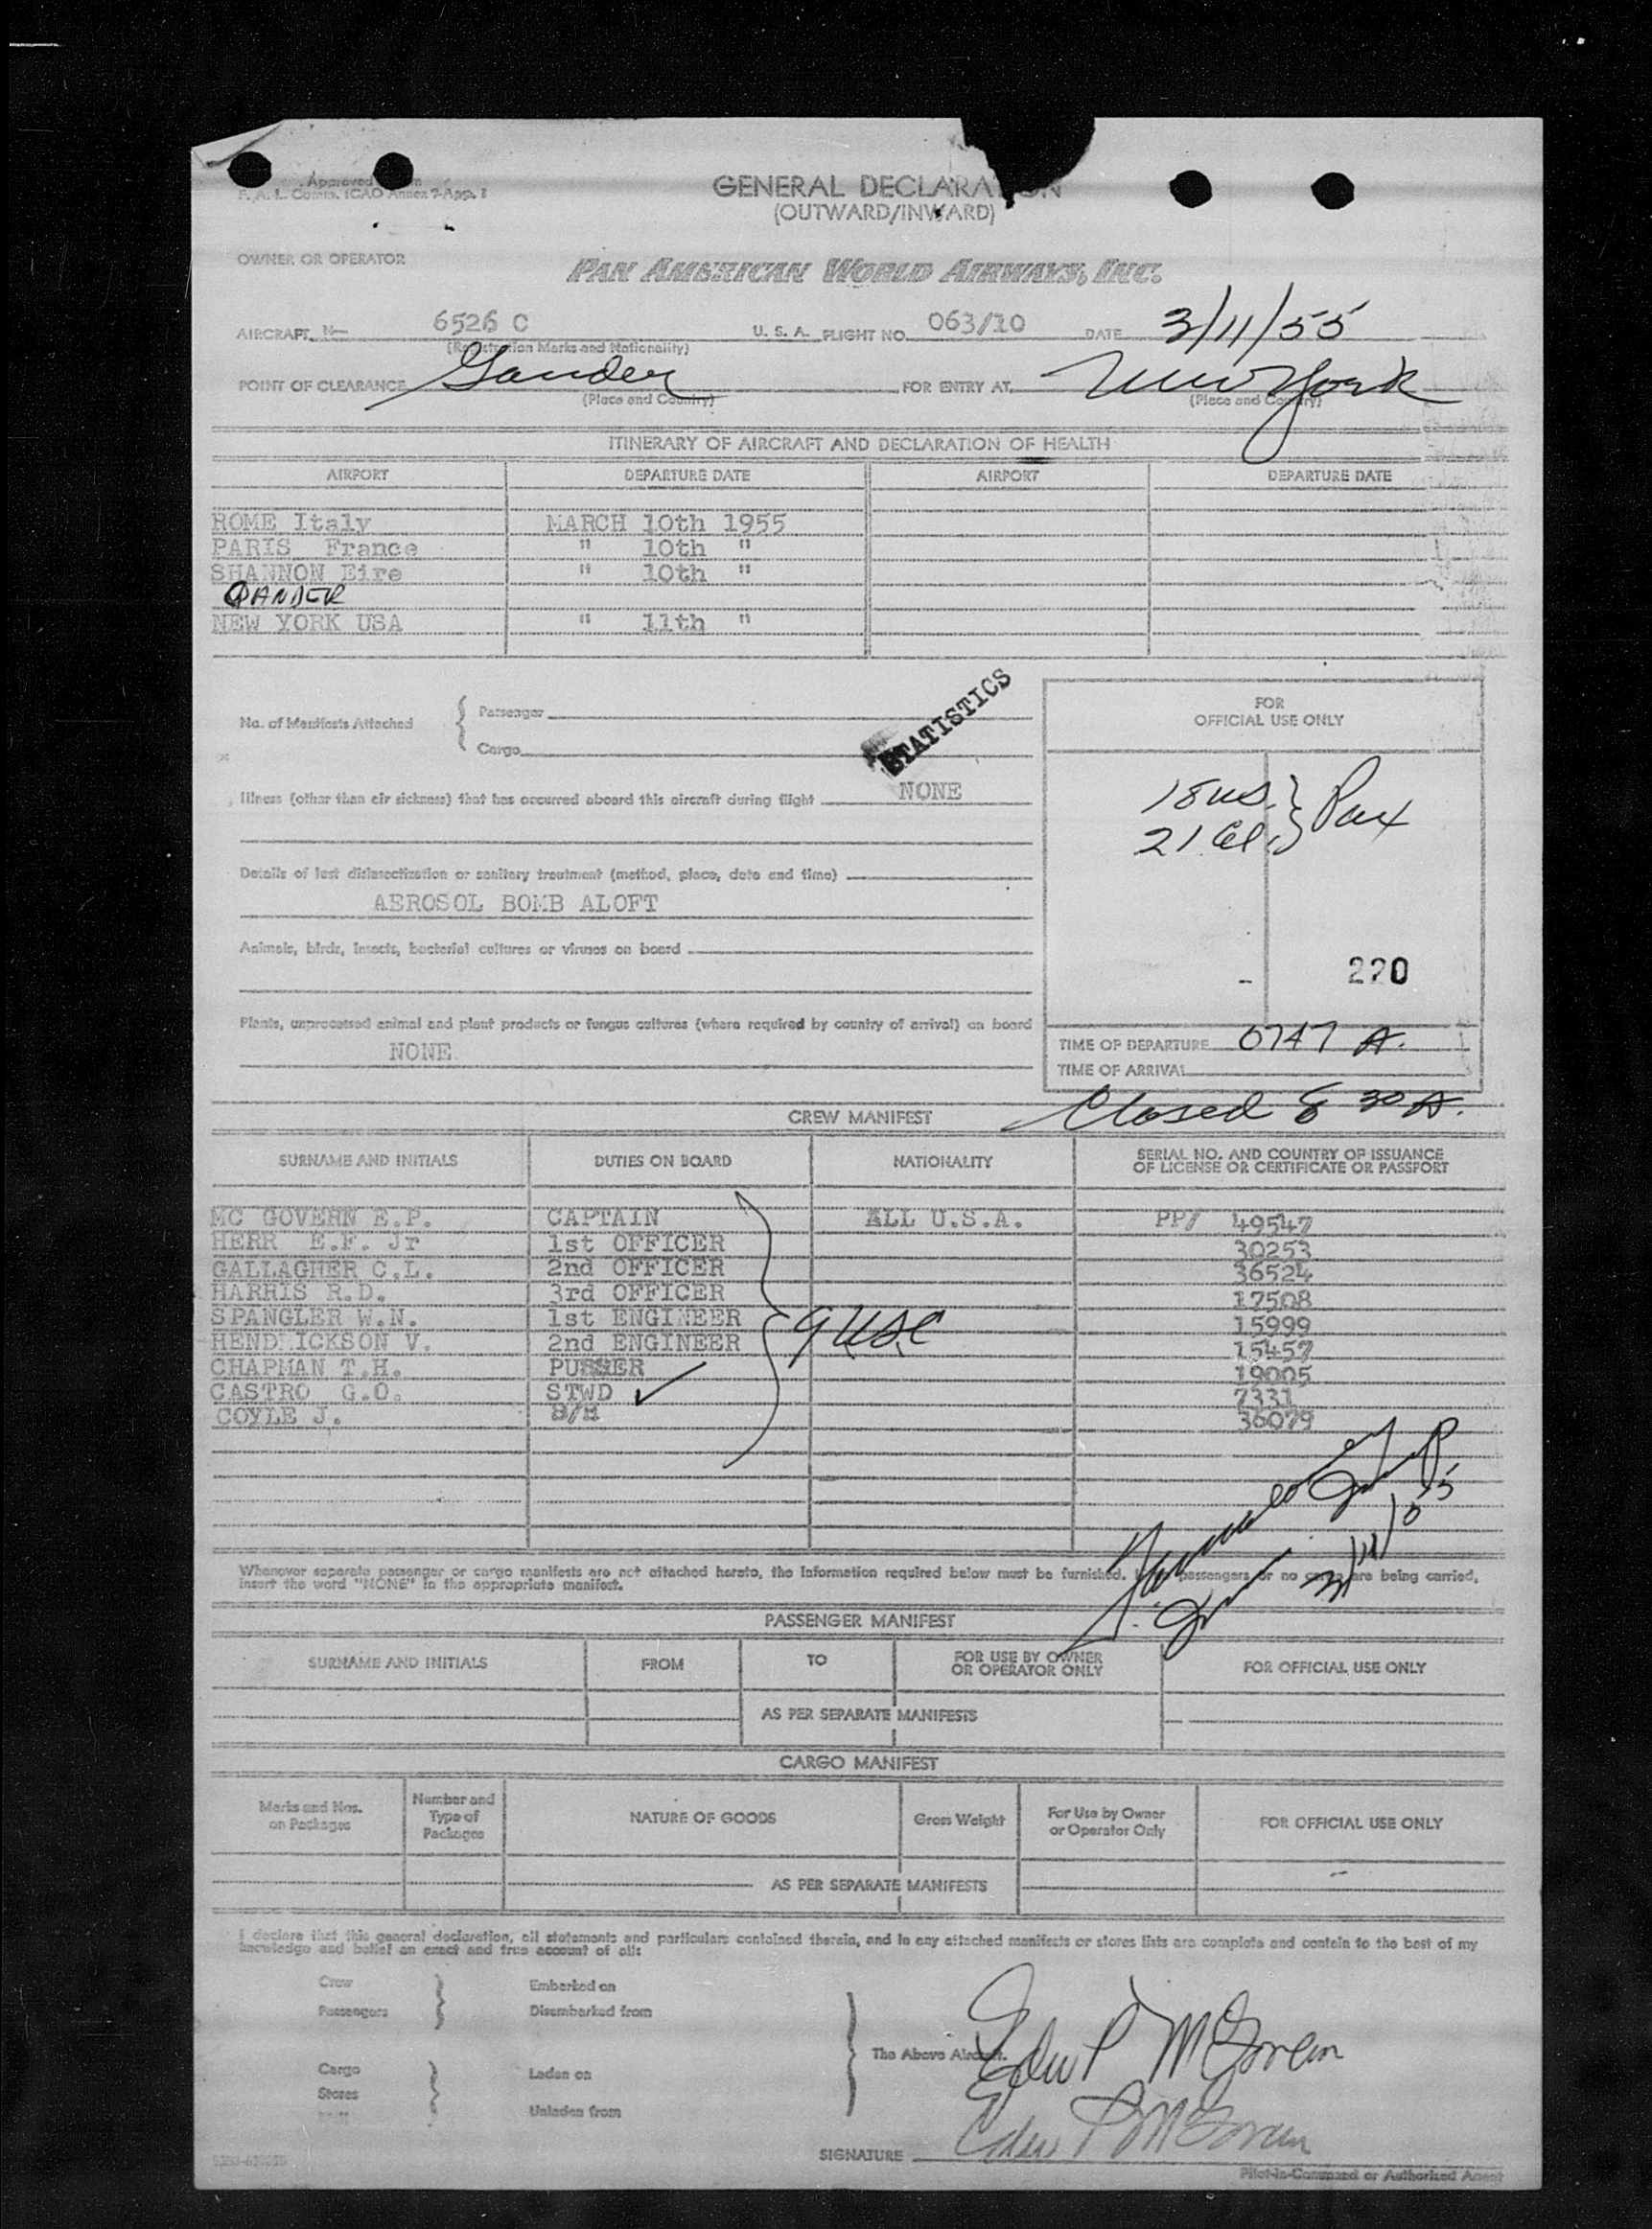 Approved
F. A. L. Comm. ICAO Annex 9-App. 1
GENERAL DECLARA ON
(OUTWARD/INWARD)
OWNER OR OPERATOR PAN AMERICAN WORLD AIRWAYS, INC.
AIRCRAFT N— 6526 C U. S. A. FLIGHT NO. 063/10 DATE 3/11/55
(Registration Marks and Nationality)
POINT OF CLEARANCE Gander FOR ENTRY AT New York
(Place and Country) (Place and Country)
ITINERARY OF AIRCRAFT AND DECLARATION OF HEALTH
AIRPORT DEPARTURE DATE AIRPORT DEPARTURE DATE
ROME Italy MARCH 10th 1955
PARIS France " 10th "
SHANNON Eire " 10th "
GANDER
NEW YORK USA " 11th "
No. of Manifests Attached { Passenger
Cargo
STATISTICS
FOR
OFFICIAL USE ONLY
Illness (other than air sickness) that has occurred aboard this aircraft during flight NONE
18 US. } Pax
21 Al.
Details of last disinsectization or sanitary treatment (method, place, date and time)
AEROSOL BOMB ALOFT
Animals, birds, insects, bacterial cultures or viruses on board
220
Plants, unprocessed animal and plant products or fungus cultures (where required by country of arrival) on board
NONE
TIME OF DEPARTURE 0747 A.
TIME OF ARRIVAL
Closed 8 30 A.
CREW MANIFEST
SURNAME AND INITIALS DUTIES ON BOARD NATIONALITY SERIAL NO. AND COUNTRY OF ISSUANCE
OF LICENSE OR CERTIFICATE OR PASSPORT
MC GOVERN E.P. CAPTAIN ALL U.S.A. PP/ 49547
HERR E.F. Jr 1st OFFICER 30253
GALLAGHER C.L. 2nd OFFICER 36524
HARRIS R.D. 3rd OFFICER 17508
SPANGLER W.N. 1st ENGINEER 15999
HENDRICKSON V. 2nd ENGINEER 15457
9 USC
CHAPMAN T.H. PURSER 19005
CASTRO G.O. STWD ✓ 7331
COYLE J. 36079
3/11/55
Whenever separate passenger or cargo manifests are not attached hereto, the information required below must be furnished. passengers or no cargo are being carried,
insert the word "NONE" in the appropriate manifest.
PASSENGER MANIFEST
SURNAME AND INITIALS FROM TO FOR USE BY OWNER
OR OPERATOR ONLY FOR OFFICIAL USE ONLY
AS PER SEPARATE MANIFESTS
CARGO MANIFEST
Marks and Nos.
on Packages Number and
Type of
Packages NATURE OF GOODS Gross Weight For Use by Owner
or Operator Only FOR OFFICIAL USE ONLY
AS PER SEPARATE MANIFESTS
I declare that this general declaration, all statements and particulars contained therein, and in any attached manifests or stores lists are complete and contain to the best of my
knowledge and belief an exact and true account of all:
Crew Embarked on
Passengers Disembarked from
The Above Aircraft.
Edw P McGovern
Cargo Laden on
Stores
Unladen from
SIGNATURE Edw P McGovern
Pilot-in-Command or Authorized Agent